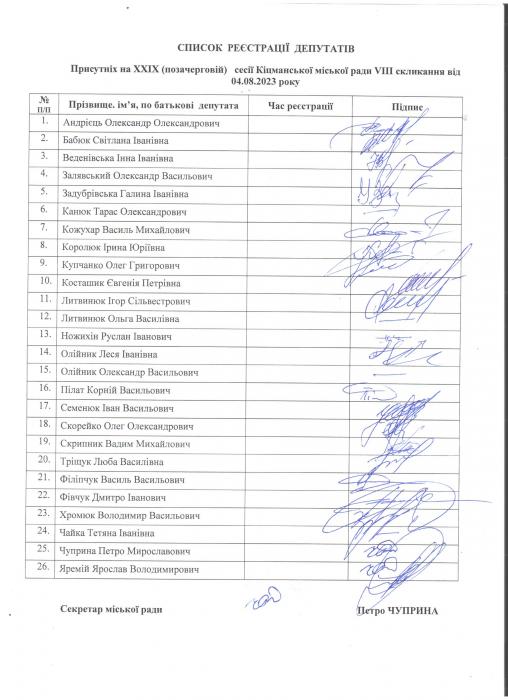 СПИСОК РЕЄСТРАЦІЇ ДЕПУТАТІВ
Присутніх на XXIX (позачерговій) сесії Кіцманської міської ради VIII скликання від
04.08.2023 року
№ п/п Прізвище. ім’я, по батькові депутата Час реєстрації Підпис
1. Андрієць Олександр Олександрович
2. Бабюк Світлана Іванівна
3. Веденівська Інна Іванівна
4. Залявський Олександр Васильович
5. Задубрівська Галина Іванівна
6. Канюк Тарас Олександрович
7. Кожухар Василь Михайлович
8. Королюк Ірина Юріївна
9. Купчанко Олег Григорович
10. Косташик Євгенія Петрівна
11. Литвинюк Ігор Сільвестрович
12. Литвинюк Ольга Василівна
13. Ножихін Руслан Іванович
14. Олійник Леся Іванівна
15. Олійник Олександр Васильович
16. Пілат Корній Васильович
17. Семенюк Іван Васильович
18. Скорейко Олег Олександрович
19. Скрипник Вадим Михайлович
20. Тріщук Люба Василівна
21. Філіпчук Василь Васильович
22. Фівчук Дмитро Іванович
23. Хромюк Володимир Васильович
24. Чайка Тетяна Іванівна
25. Чуприна Петро Мирославович
26. Яремій Ярослав Володимирович
Секретар міської ради Петро ЧУПРИНА